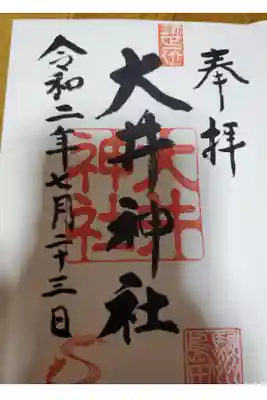 奉拝
大井神社
大井神社
令和二年七月二十三日